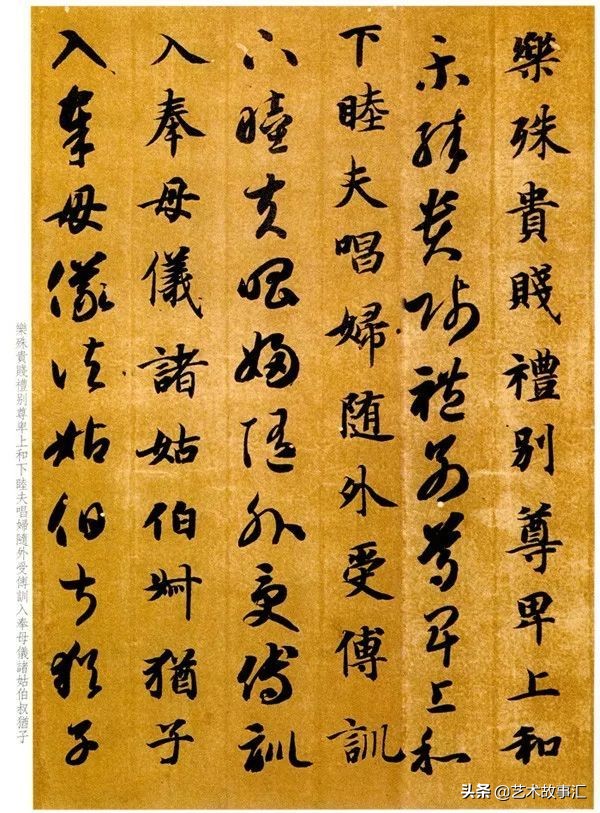 樂殊貴賤禮別尊卑上和
樂殊貴賤禮別尊卑上和
下睦夫唱婦隨外受傅訓
下睦夫唱婦隨外受傅訓
入奉母儀諸姑伯叔猶子
入奉母儀諸姑伯叔猶子
樂殊貴賤禮別尊卑上和下睦夫唱婦隨外受傅訓入奉母儀諸姑伯叔猶子
头条 @艺术故事汇